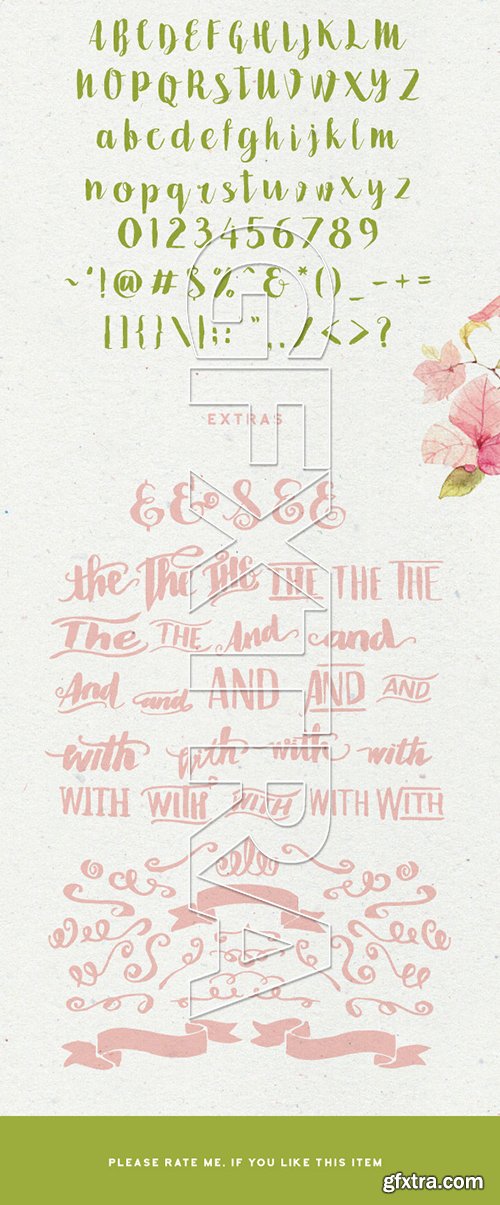 A B C D E F G H I J K L M
N O P Q R S T U V W X Y Z
a b c d e f g h i j k l m
n o p q r s t u v w x y z
0 1 2 3 4 5 6 7 8 9
~ ' ! @ # $ % ^ & * ( ) _ - + =
[ ] { } \ | ; : " , . / < > ?
EXTRAS
& & & & &
the The the THE THE THE
The THE And and
And and AND AND AND
with with with with
WITH WITH WITH WITH WITH
GFXTRA
PLEASE RATE ME, IF YOU LIKE THIS ITEM
gfxtra.com